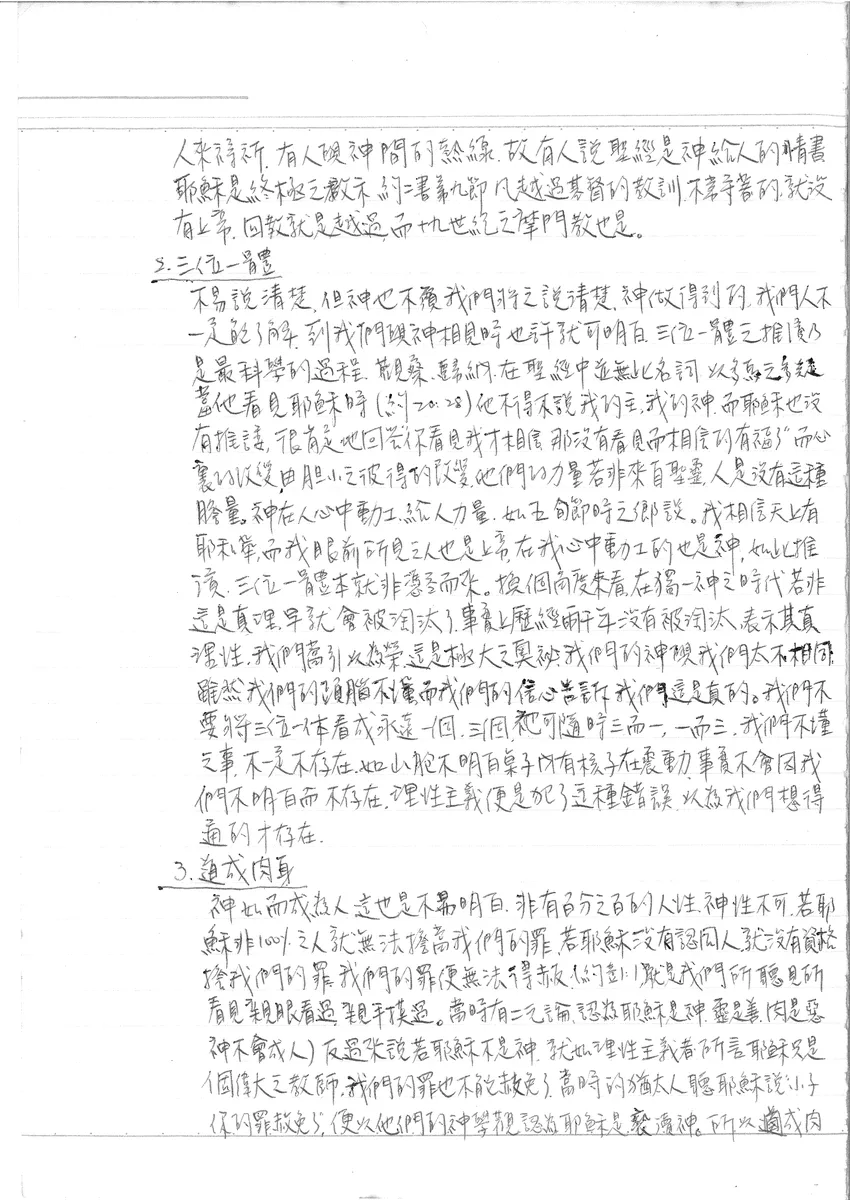 人來禱祈. 有人與神間的熱線. 故有人說聖經是神給人的情書
耶穌是終極之啟示 約二書第九節 凡越過基督的教訓.不常守著的,就沒
有上帝. 回教就是越過,而十九世紀之摩門教也是。
2. 三位一體
不易說清楚. 但神也不願我們將之說清楚. 神做得到的. 我們人不
一定能了解. 到我們與神相見時也許就可明白. 三位一體之推演乃
是最科學的過程. 觀察、歸納. 在聖經中並無此名詞 以多馬之
當他看見耶穌時 (約20:28) 他不得不說我的主,我的神.而耶穌也沒
有推諉, 很肯定地回答你看見我才相信 那沒有看見而相信的有福了 而心
裏的改變,由胆小之彼得的改變,他們的力量若非來自聖靈,人是沒有這種
膽量. 神在人心中動工,給人力量. 如五旬節時之鄉談。我相信天上有
耶和華,而我眼前所見之人也是上帝,在我心中動工的也是神, 如此推
演. 三位一體本就非憑空而來。換個角度來看,在獨一神之時代若非
這是真理,早就會被淘汰了.事實上歷經兩千年沒有被淘汰 表示其真
理性. 我們當引以為榮.這是極大之奧祕,我們的神與我們太不相同
雖然我們的頭腦不懂而我們的信心告訴我們這是真的。我們不
要將三位一体看成永遠一個. 三個,祂可隨時三而一, 一而三. 我們不懂
之事. 不一定不存在.如山胞不明白桌子內有核子在震動,事實不會因我
們不明白而不存在. 理性主義便是犯了這種錯誤. 以為我們想得
通的才存在.
3. 道成肉身
神如而成為人 這也是不易明白. 非有百分之百的人性,神性不可. 若耶
穌非100%之人就無法擔當我們的罪. 若耶穌沒有認同人.就沒有資格
擔我們的罪,我們的罪便無法得赦. (約壹1:1 就是我們所聽見所
看見,親眼看過,親手摸過。當時有二元論,認為耶穌是神. 靈是善.肉是惡
神不會成人) 反過來說若耶穌不是神. 就如理性主義者所言耶穌只是
個偉大之教師. 我們的罪也不能赦免了. 當時的猶太人聽耶穌說小子
你的罪赦免了, 便以他們的神學觀認為耶穌是褻瀆神。所以道成肉